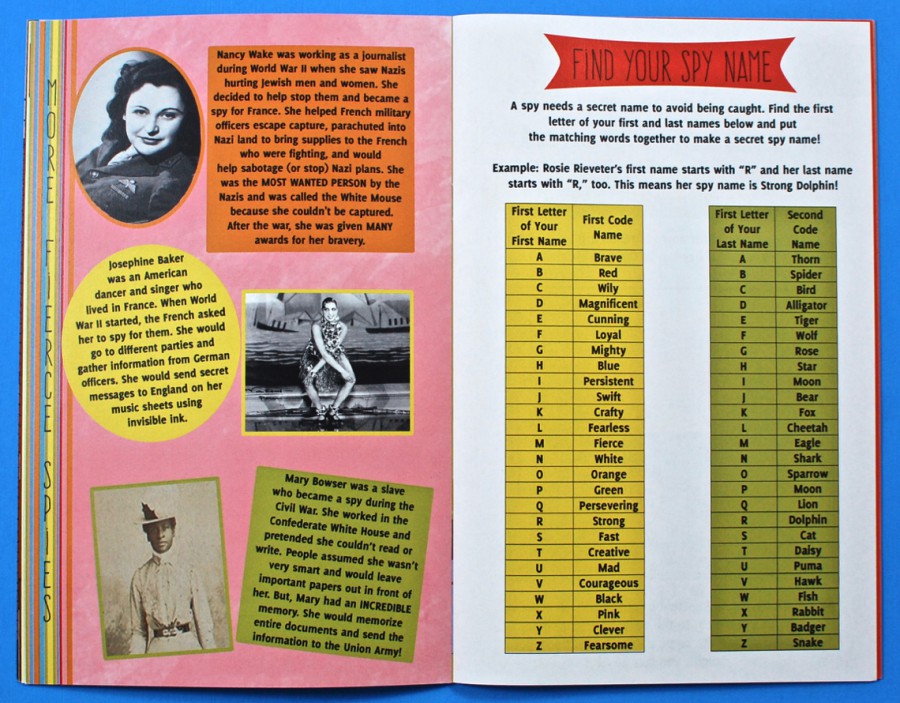 MORE FIERCE SPIES
Nancy Wake was working as a journalist
during World War II when she saw Nazis
hurting Jewish men and women. She
decided to help stop them and became a
spy for France. She helped French military
officers escape capture, parachuted into
Nazi land to bring supplies to the French
who were fighting, and would
help sabotage (or stop) Nazi plans. She
was the MOST WANTED PERSON by the
Nazis and was called the White Mouse
because she couldn't be captured.
After the war, she was given MANY
awards for her bravery.
Josephine Baker
was an American
dancer and singer who
lived in France. When World
War II started, the French asked
her to spy for them. She would
go to different parties and
gather information from German
officers. She would send secret
messages to England on her
music sheets using
invisible ink.
Mary Bowser was a slave
who became a spy during the
Civil War. She worked in the
Confederate White House and
pretended she couldn't read or
write. People assumed she wasn't
very smart and would leave
important papers out in front of
her. But, Mary had an INCREDIBLE
memory. She would memorize
entire documents and send the
information to the Union Army!
FIND YOUR SPY NAME
A spy needs a secret name to avoid being caught. Find the first
letter of your first and last names below and put
the matching words together to make a secret spy name!
Example: Rosie Rieveter's first name starts with "R" and her last name
starts with "R," too. This means her spy name is Strong Dolphin!
First Letter
of Your
First Name
First Code
Name
A Brave
B Red
C Wily
D Magnificent
E Cunning
F Loyal
G Mighty
H Blue
I Persistent
J Swift
K Crafty
L Fearless
M Fierce
N White
O Orange
P Green
Q Persevering
R Strong
S Fast
T Creative
U Mad
V Courageous
W Black
X Pink
Y Clever
Z Fearsome
First Letter
of Your
Last Name
Second
Code
Name
A Thorn
B Spider
C Bird
D Alligator
E Tiger
F Wolf
G Rose
H Star
I Moon
J Bear
K Fox
L Cheetah
M Eagle
N Shark
O Sparrow
P Moon
Q Lion
R Dolphin
S Cat
T Daisy
U Puma
V Hawk
W Fish
X Rabbit
Y Badger
Z Snake